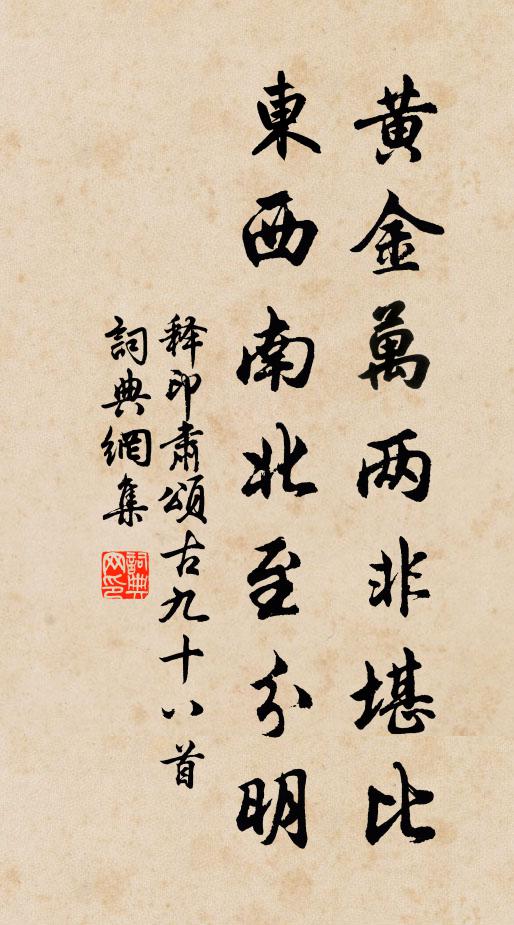 黄金萬两非堪比
東西南北至分明
释印肅頌古九十八首
詞典網集
詞典网印